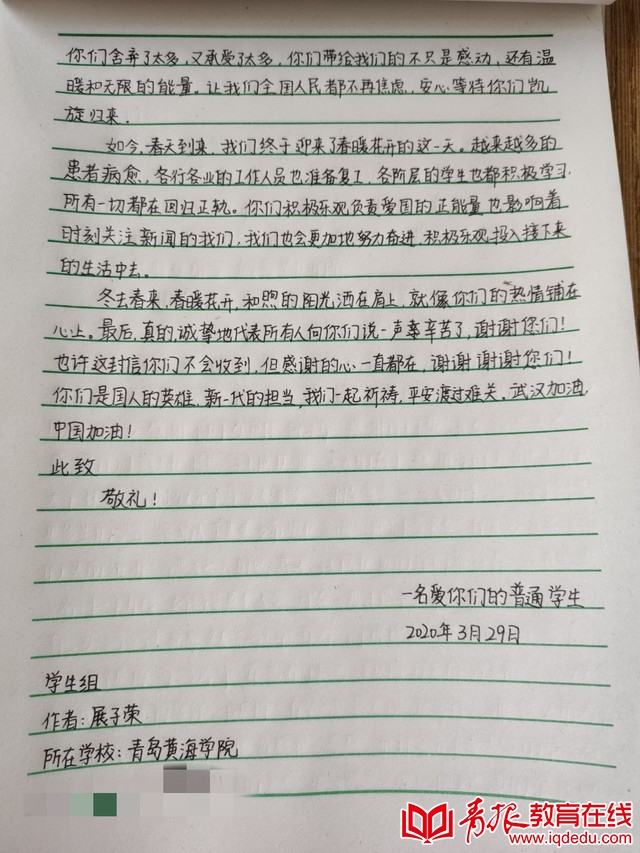 你们舍弃了太多，又承受了太多，你们带给我们的不只是感动，还有温
暖和无限的能量。让我们全国人民都不再焦虑，安心等待你们凯
旋归来．
如今，春天到来，我们终于迎来了春暖花开的这一天。越来越多的
患者病愈，各行各业的工作人员也准备复工，各阶层的学生也都积极学习，
所有一切都在回归正轨。你们积极乐观负责爱国的正能量也影响着
时刻关注新闻的我们，我们也会更加地努力奋进，积极乐观投入接下来
的生活中去。
冬去春来，春暖花开，和煦的阳光洒在肩上，就像你们的热情铺在
心上。最后，真的，诚挚地代表所有人向你们说一声辛苦了，谢谢您们！
也许这封信你们不会收到，但感谢的心一直都在，谢谢谢谢您们！
你们是国人的英雄，新一代的担当，我们一起祈祷，平安渡过难关。武汉加油，
中国加油！
此致
敬礼！
一名爱你们的普通学生
2020年3月29日
学生组
作者：展子荣
所在学校：青岛黄海学院
青报教育在线
www.iqdedu.com